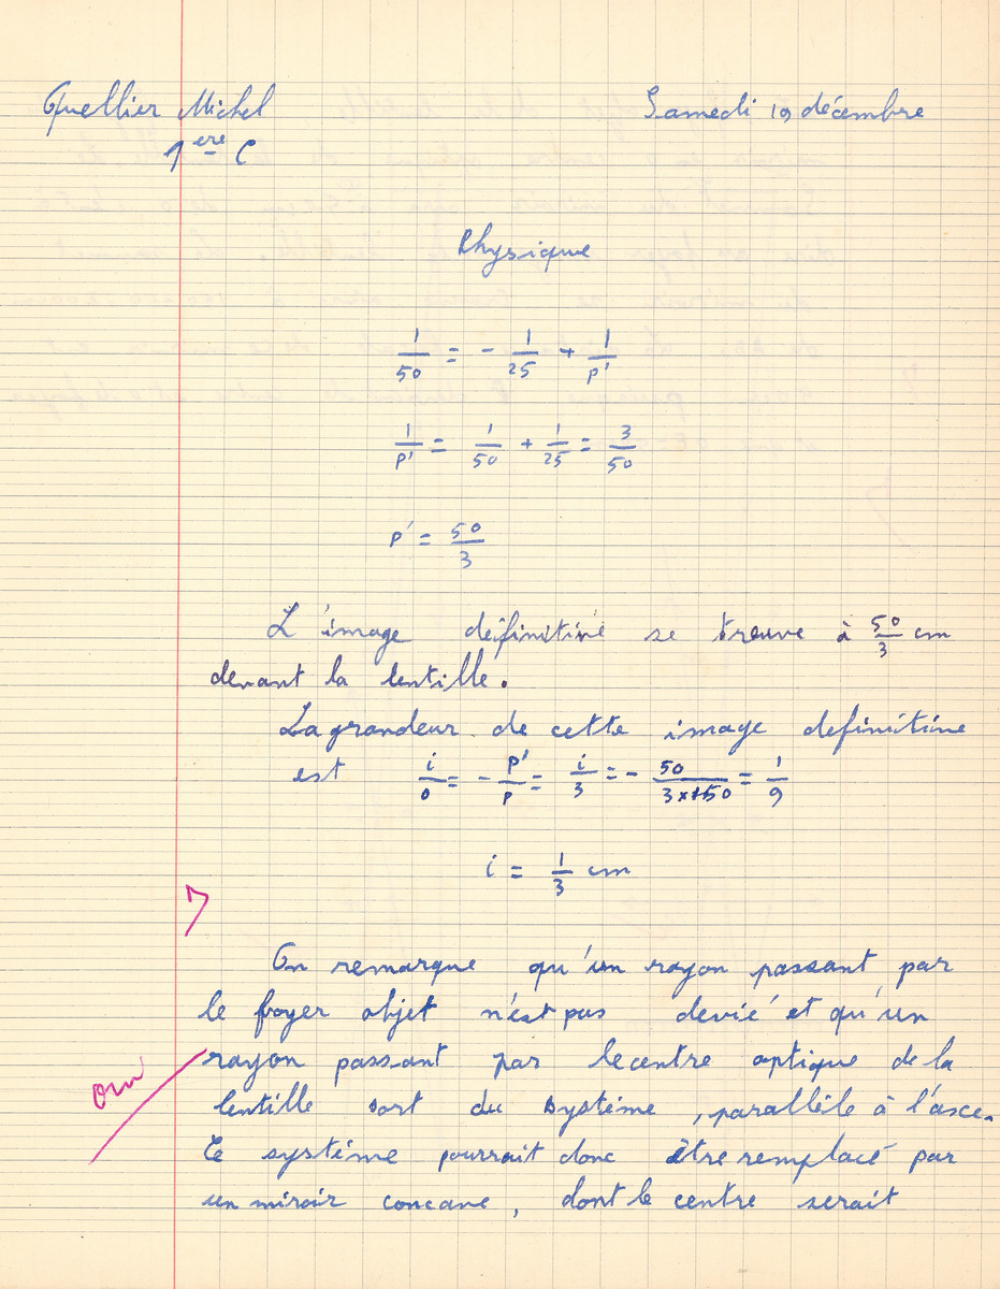 Quellier Michel
Samedi 19 décembre
1ère C
Physique
1/50 = - 1/25 + 1/p'
1/p' = 1/50 + 1/25 = 3/50
p' = 50/3
L'image définitive se trouve à 50/3 cm
devant la lentille.
La grandeur de cette image definitive
est i/o = - p'/p = i/3 = - 50/3x150 = 1/9
i = 1/3 cm
On remarque qu'un rayon passant par
le foyer objet n'est pas devié et qu'un
rayon passant par le centre optique de la
oui
lentille sort du système, parallèle à l'axe.
Ce système pourrait donc être remplacé par
un miroir concave, dont le centre serait